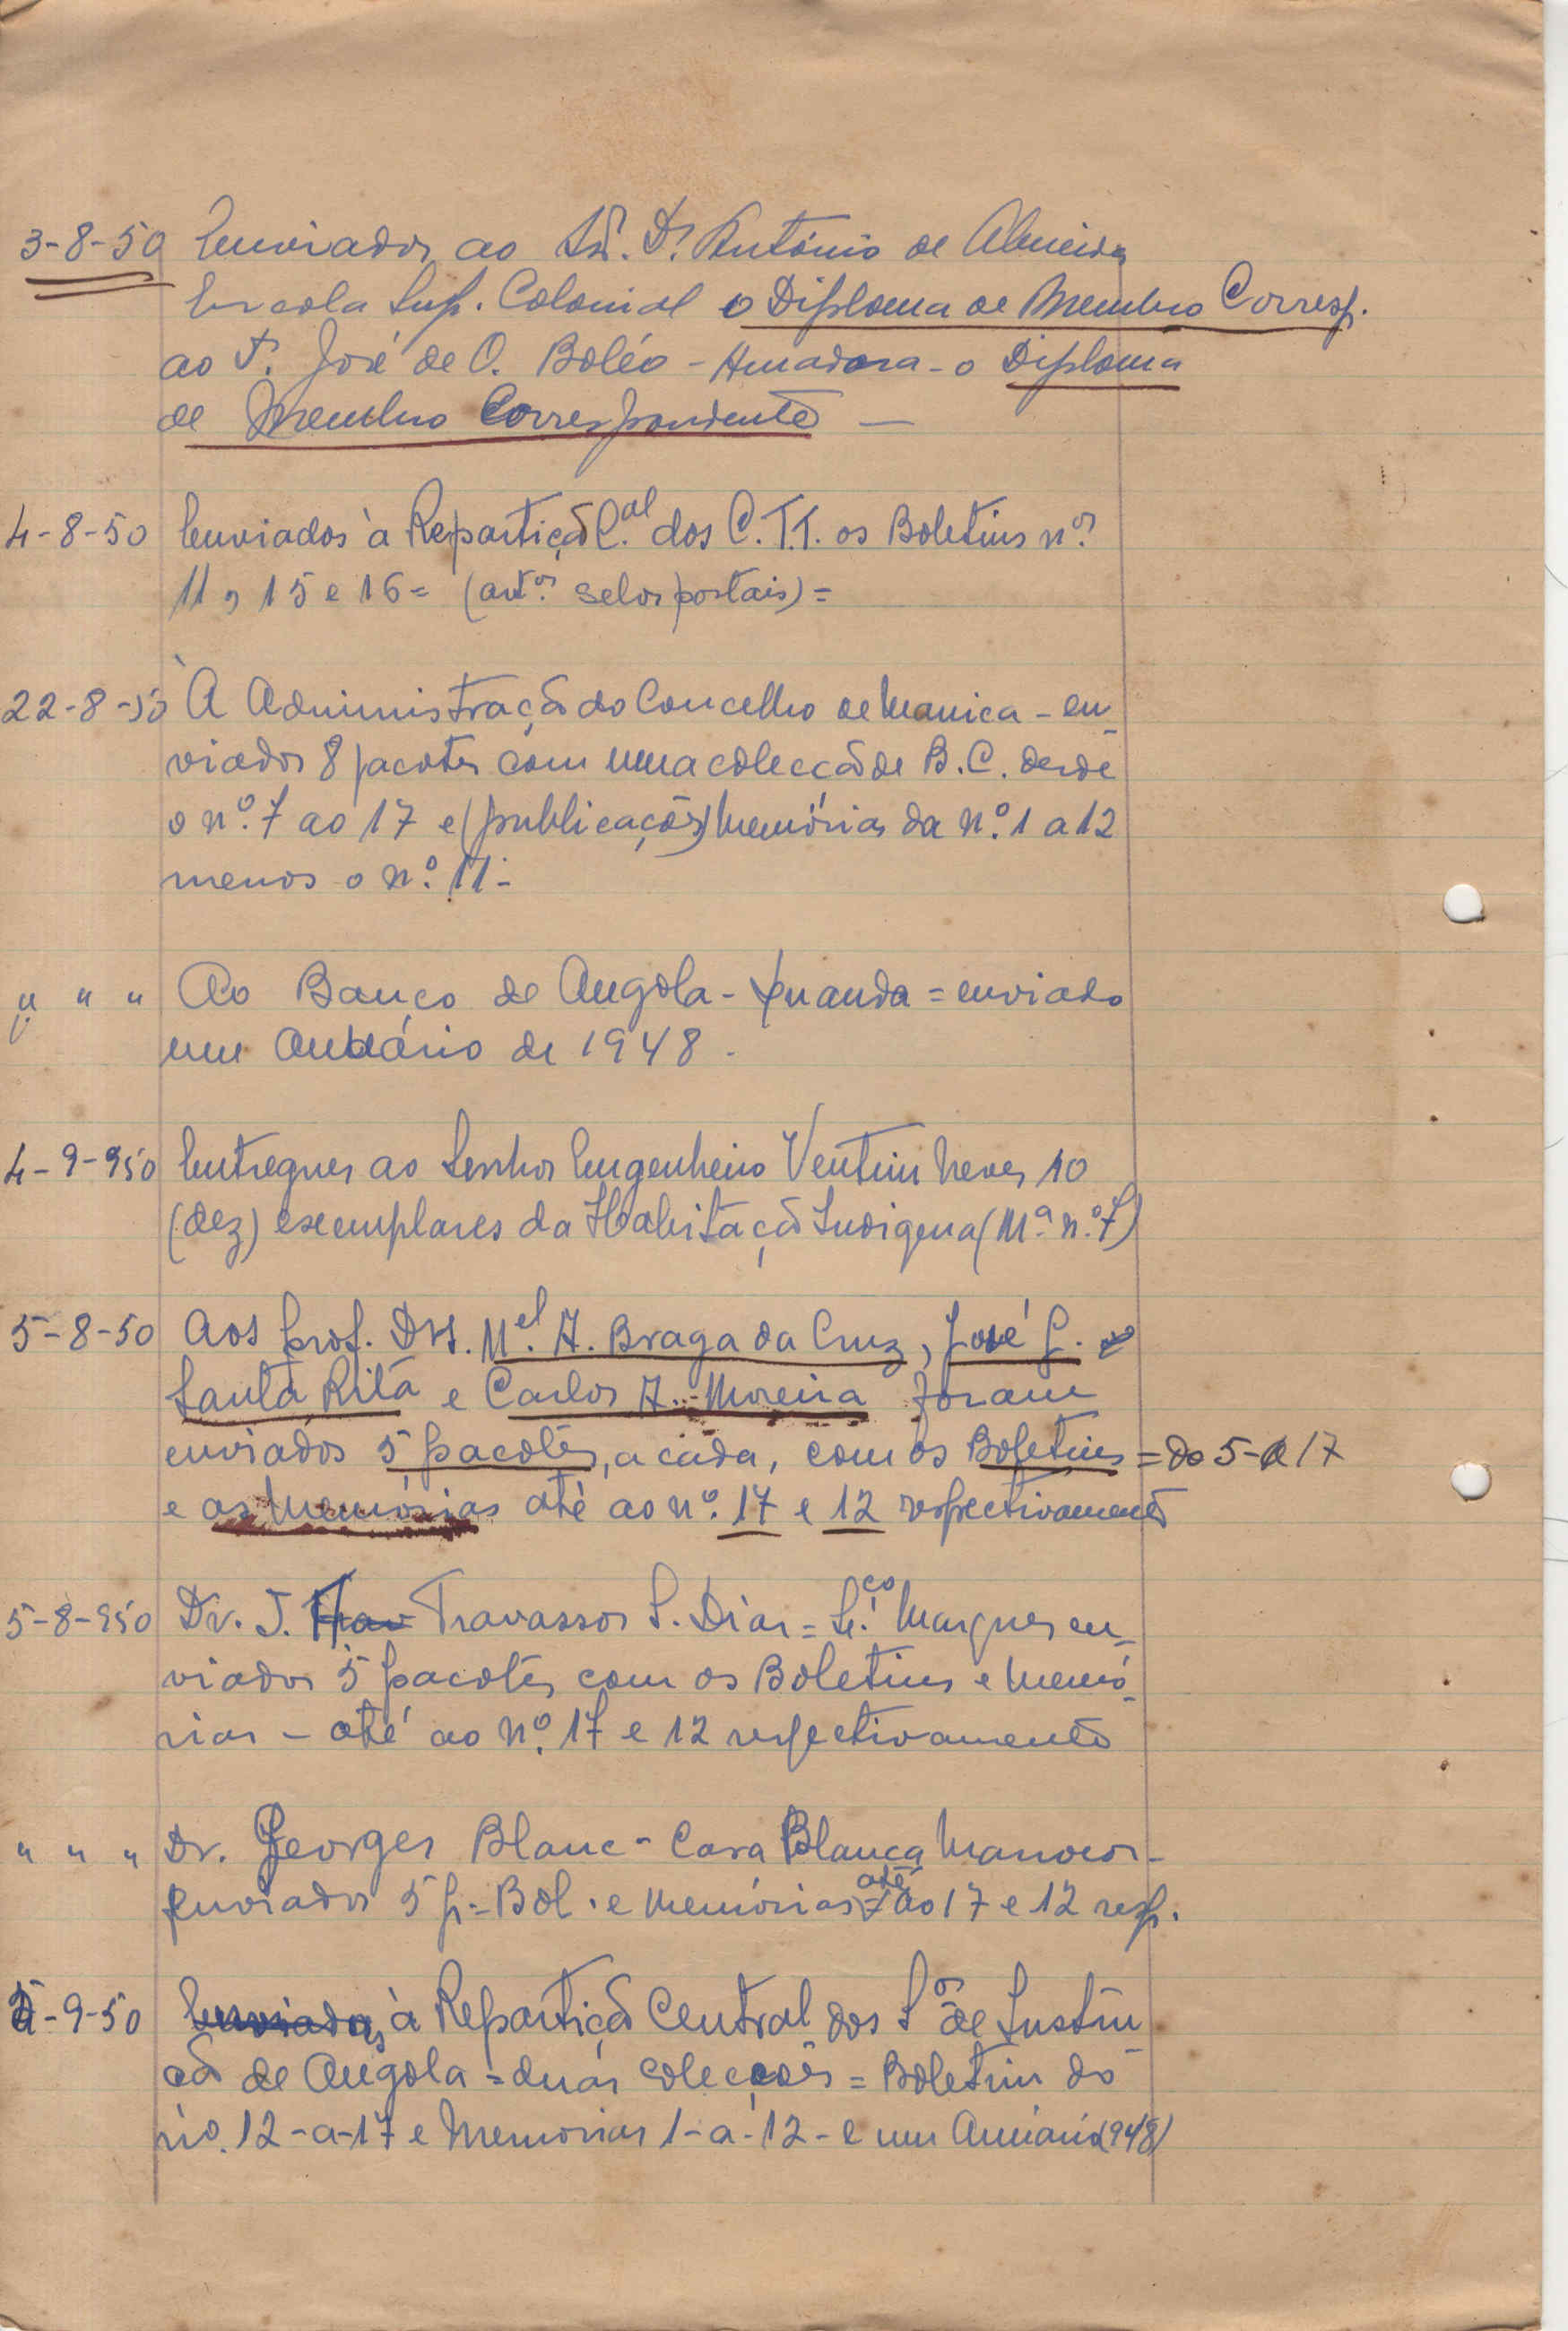 3-8-50 Enviados ao Sr. Dr. António de Almeida
Escola Sup. Colonial o Diploma de Membro Corresp.
ao Dr. José de O. Boléo - Amadora - o Diploma
de Membro Correspondente —
4-8-50 Enviados à Repartição C.al dos C.T.T. os Boletins n.os
11, 15 e 16 = (art.os selos postais) =
22-8-50 À Administração do Concelho de Manica - en-
viados 8 pacotes com uma colecção de B.C. desde
o n.º 7 ao 17 e (publicações) Memórias da n.º 1 a 12
menos o n.º 11 -
" " " Ao Banco de Angola - Luanda = enviado
um Anuário de 1948 -
4-9-950 Entregues ao Senhor Engenheiro Ventim Neves 10
(dez) exemplares da Habitação Indigena (M.ª n.º 7)
5-8-50 Aos Prof. Drs. M.el A. Braga da Cruz, José G. de
Santa Rita e Carlos A. Moreira foram
enviados 5 pacotes, a cada, com os Boletins = do 5-a 17
e as Memórias até ao n.º 17 e 12 respectivamente
5-8-950 Dr. J. Trav Travassos S. Dias = L.ço Marques en-
viados 5 pacotes com os Boletins e Memó-
rias - até ao n.º 17 e 12 respectivamente
" " " Dr. Georges Blanc - Casa Blanca Marrocos -
Enviados 5 p. = Bol. e Memórias até ao 17 e 12 resp.
-9-50 Enviadas à Repartição Central dos S.os de Instru-
ção de Angola = duas colecções = Boletim do
n.o. 12-a-17 e Memorias 1-a-12 - e um Anuário (948)